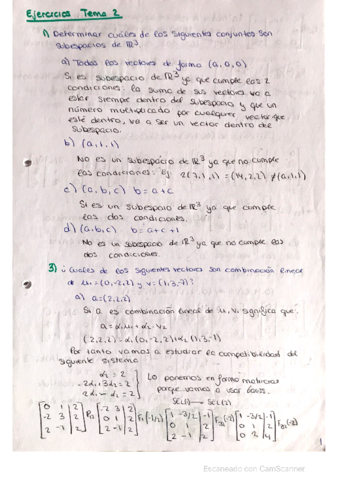 Ejercicios Tema 2
1) Determinar cuáles de los siguientes conjuntos son
subespacios de ℝ³.
a) Todos los vectores de forma (a,0,0)
Si es subespacio de ℝ³ ya que cumple las 2
condiciones: la suma de sus vectores va a
estar siempre dentro del subespacio y que un
número multiplicado por cualquier vector que
esté dentro, va a ser un vector dentro del
subespacio.
b) (a,1,1)
No es un subespacio de ℝ³ ya que no cumple
las condiciones: ej 2(7,1,1) = (14,2,2) ≠ (a,1,1)
c) (a,b,c) b=a+c
Si es un subespacio de ℝ³ ya que cumple
las dos condiciones.
d) (a,b,c) b=a+c+1
No es un subespacio de ℝ³ ya que no cumple las
dos condiciones.
3) ¿Cuáles de los siguientes vectores son combinación lineal
de u=(0,-2,2) y v=(1,3,-1)?
a) a=(2,2,2)
Si a es combinación lineal de u, v, significa que:
(2,2,2) = α₁(0,-2,2)+α₂(1,3,-1)
Por tanto vamos a estudiar la compatibilidad del
siguiente sistema
α₂ = 2
-2α₁+3α₂ = 2
2α₁-α₂ = 2
Lo ponemos en forma matricial
porque vamos a usar
[0 1 | 2; -2 3 | 2; 2 -1 | 2] F₁₂ [-2 3 | 2; 0 1 | 2; 2 -1 | 2] F₁(-1/2) [1 -3/2 | -1; 0 1 | 2; 2 -1 | 2] [1 -3/2 | -1; 0 1 | 2; 0 2 | 4]
1
Escaneado con CamScanner